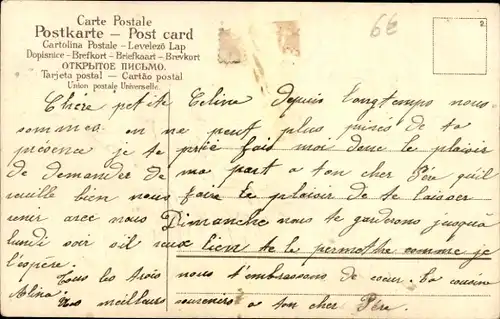 Carte Postale
Postkarte — Post card
Cartolina Postale – Levelező Lap
Dopisnice – Brefkort – Briefkaart – Brevkort
ОТКРЫТОЕ ПИСЬМО.
Tarjeta postal – Cartão postal
Union postale Universelle.
66
2
Chère petite Celina depuis longtemps nous
sommes on ne peut plus privés de ta
présence je te prie fais moi donc le plaisir
de demander de ma part a ton cher Père qu'il
veuille bien nous faire le plaisir de te laisser
venir avec nous Dimanche nous te garderons jusqu'à
lundi soir s'il veut bien te le permettre comme je
l'espère. Tous les trois nous t'embrassons de cœur. Ta cousine
Alina. Nos meilleurs souvenirs a ton cher Père.